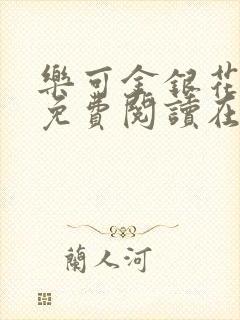 樂可金銀花
免費閱讀在
蘭人河